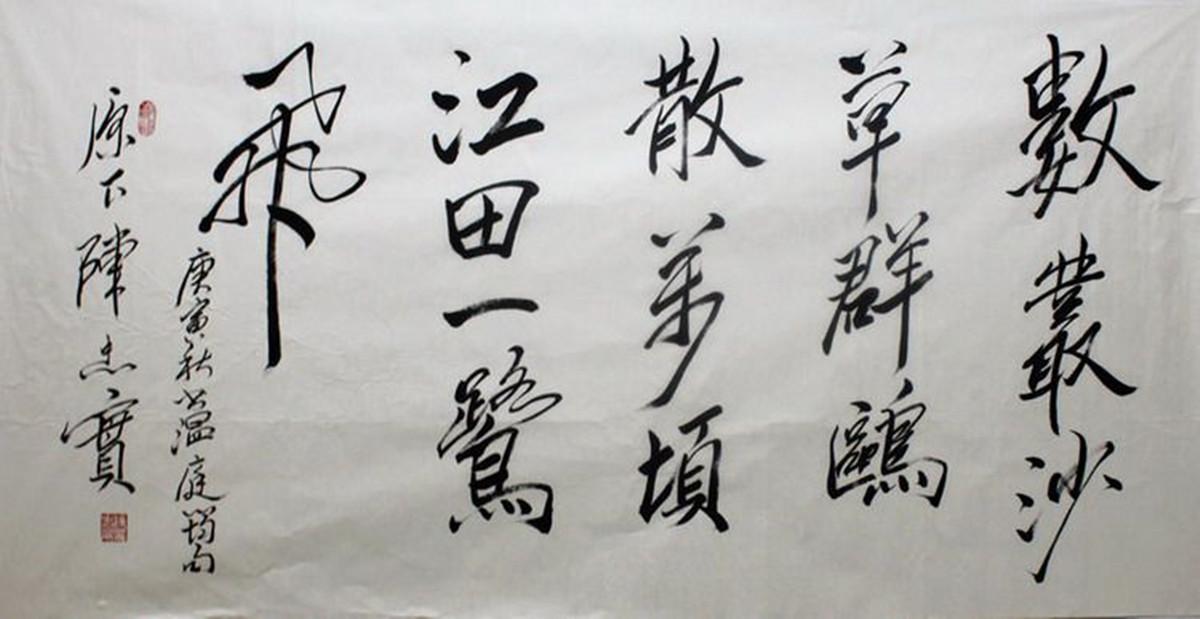 數叢沙
草群鷗
散萬頃
江田一鷺
飛
庚寅秋書溫庭筠句
原下陳忠實